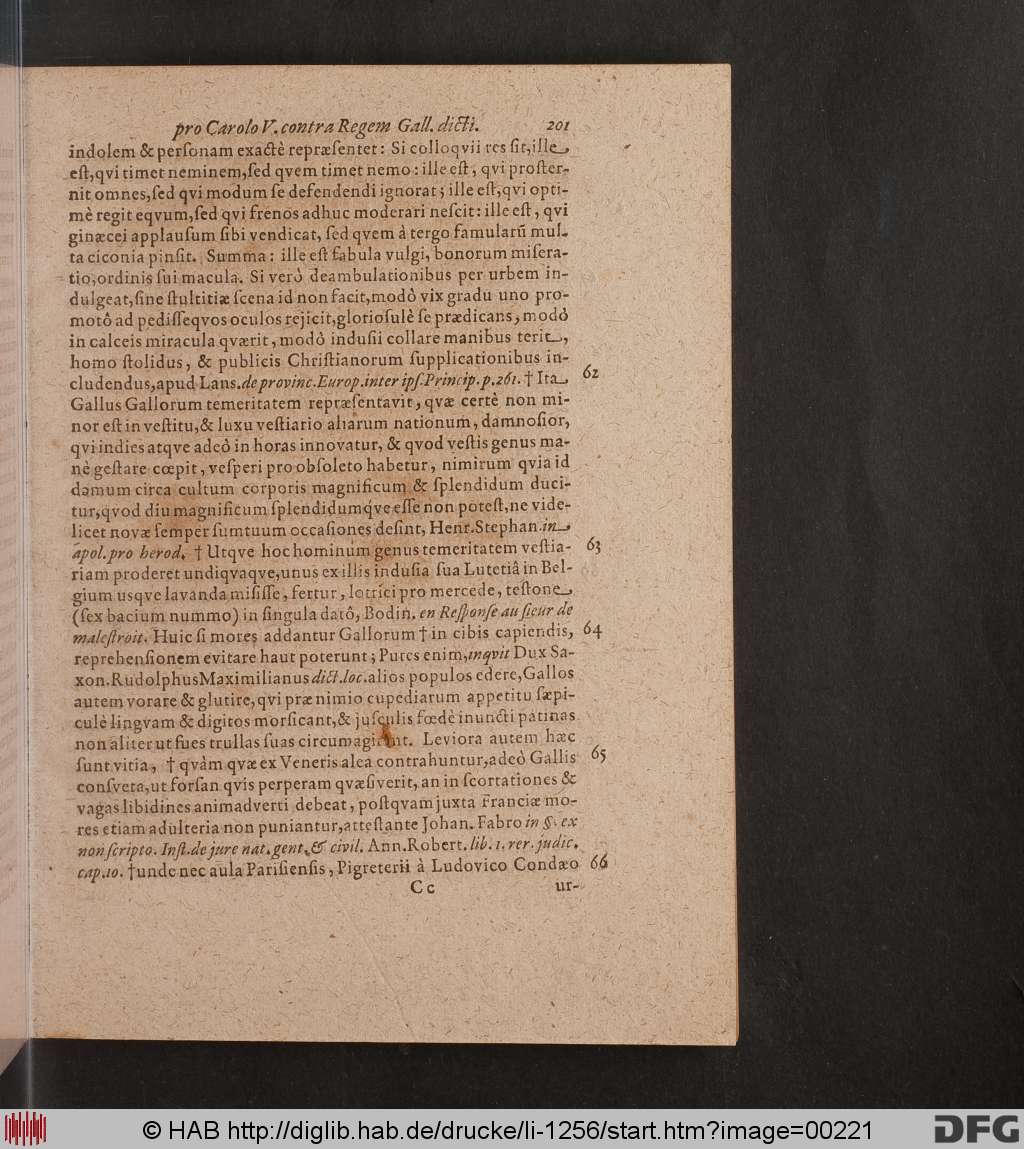 pro Carolo V. contra Regem Gall. dicti. 201
indolem & personam exactè repræsentet: Si colloqvii res sit, ille
est, qvi timet neminem, sed qvem timet nemo: ille est, qvi proster-
nit omnes, sed qvi modum se defendendi ignorat; ille est, qvi opti-
mè regit eqvum, sed qvi frenos adhuc moderari nescit: ille est, qvi
ginæcei applausum sibi vendicat, sed qvem à tergo famularũ mul-
ta ciconia pinsit. Summa: ille est fabula vulgi, bonorum misera-
tio, ordinis sui macula. Si verò deambulationibus per urbem in-
dulgeat, sine stultitiæ scena id non facit, modò vix gradu uno pro-
motô ad pedisseqvos oculos rejicit, gloriosulè se prædicans, modò
in calceis miracula qværit, modò indusii collare manibus terit,
homo stolidus, & publicis Christianorum supplicationibus in-
cludendus, apud Lans. de provinc. Europ. inter ips. Princip. p. 261. † Ita 62
Gallus Gallorum temeritatem repræsentavit, qvæ certè non mi-
nor est in vestitu, & luxu vestiario aliarum nationum, damnosior,
qvi indies atqve adeò in horas innovatur, & qvod vestis genus ma-
nè gestare cœpit, vesperi pro obsoleto habetur, nimirum qvia id
damum circa cultum corporis magnificum & splendidum duci-
tur, qvod diu magnificum splendidumq́ve esse non potest, ne vide-
licet novæ semper sumtuum occasiones desint, Henr. Stephan. in
apol. pro herod. † Utqve hoc hominum genus temeritatem vestia- 63
riam proderet undiqvaqve, unus ex illis indusia sua Lutetiâ in Bel-
gium usqve lavanda misisse, fertur, lotrici pro mercede, testone
(sex bacium nummo) in singula datô, Bodin. en Response au sieur de
malestroit. Huic si mores addantur Gallorum † in cibis capiendis, 64
reprehensionem evitare haut poterunt; Putes enim, inqvit Dux Sa-
xon. Rudolphus Maximilianus dict. loc. alios populos edere, Gallos
autem vorare & glutire, qvi præ nimio cupediarum appetitu sæpi-
culè lingvam & digitos morsicant, & jusculis fœdè inuncti patinas
non aliter ut sues trullas suas circumagitant. Leviora autem hæc
sunt vitia, † qvàm qvæ ex Veneris alea contrahuntur, adeò Gallis 65
consveta, ut forsan qvis perperam qvæsiverit, an in scortationes &
vagas libidines animadverti debeat, postqvam juxta Franciæ mo-
res etiam adulteria non puniantur, attestante Johan. Fabro in §. ex
non scripto. Inst. de jure nat. gent. & civil. Ann. Robert. lib. 1. rer. judic.
cap. 10. † unde nec aula Parisiensis, Pigreterii à Ludovico Condæo 66
Cc ur-
© HAB http://diglib.hab.de/drucke/li-1256/start.htm?image=00221
DFG